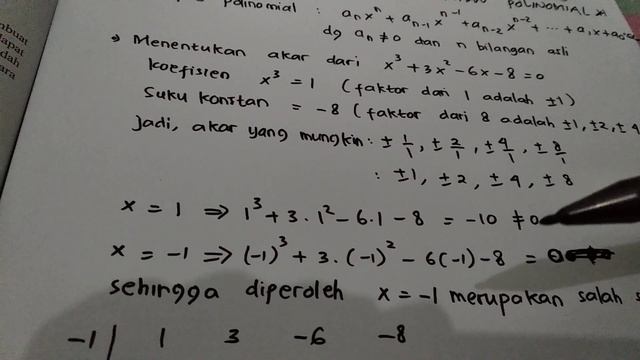 Polinomial : aₙxⁿ + aₙ₋₁xⁿ⁻¹ + aₙ₋₂xⁿ⁻² + ... + a₁x + a₀
POLINOMIAL
dg aₙ ≠ 0 dan n bilangan asli
→ Menentukan akar dari x³ + 3x² - 6x - 8 = 0
koefisien x³ = 1 (faktor dari 1 adalah ±1)
Suku konstan = -8 (faktor dari 8 adalah ±1, ±2, ±4
Jadi, akar yang mungkin : ± 1/1, ± 2/1, ± 4/1, ± 8/1
: ±1, ±2, ±4, ±8
x = 1 ⇒ 1³ + 3.1² - 6.1 - 8 = -10 ≠ 0
x = -1 ⇒ (-1)³ + 3.(-1)² - 6(-1) - 8 = 0
sehingga diperoleh x = -1 merupakan salah
-1 | 1 3 -6 -8